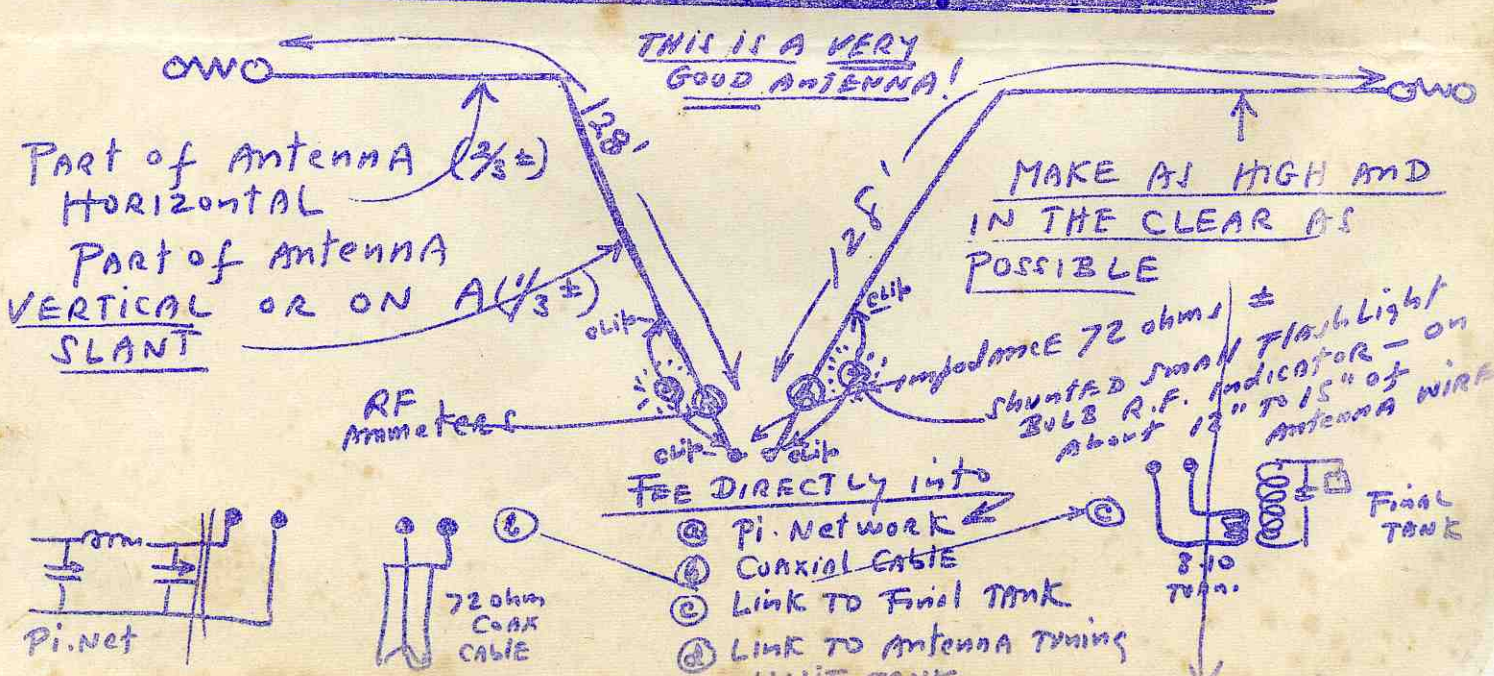 THIS IS A VERY
GOOD ANTENNA!
128'
128'
PART of ANTENNA (2/3 ±)
HORIZONTAL
PART of ANTENNA
VERTICAL OR ON A (1/3 ±)
SLANT
MAKE AS HIGH AND
IN THE CLEAR AS
POSSIBLE
clip
clip
impedance 72 ohms ±
SHUNTED small Flashlight
BULB R.F. INDICATOR - ON
About 12" TO 15" of
Antenna WIRE
RF
Ammeters
clip
clip
FEE DIRECTLY into
(a) Pi. Network
(b) COAXIAL CABLE
(c) LINK TO Final TANK
(d) LINK TO Antenna Tuning
UNIT TANK
Pi. Net
72 ohm
COAX
CABLE
(b)
(c)
8-10
TURN.
FINAL
TANK